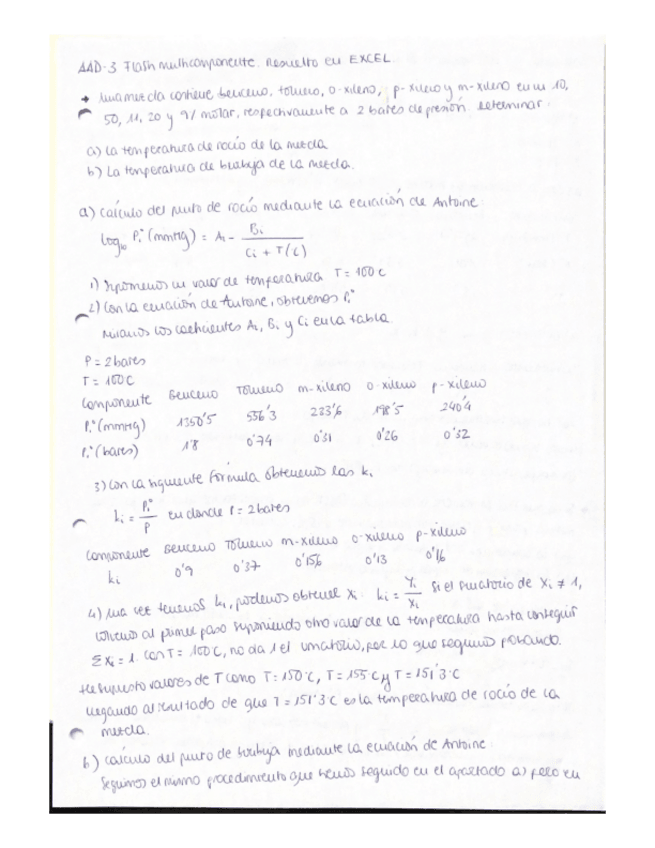 AAD-3 Flash multicomponente. Resuelto en EXCEL.
→ Una mezcla contiene benceno, tolueno, o-xileno, p-xileno y m-xileno en un 10,
50, 11, 20 y 9% molar, respectivamente a 2 bares de presión determinar:
a) La temperatura de rocío de la mezcla
b) La temperatura de burbuja de la mezcla.
a) Cálculo del punto de rocío mediante la ecuación de Antoine:
log10 Pi° (mmHg) = Ai - Bi / (Ci + T(C))
1) Suponemos un valor de temperatura T = 100 C
2) Con la ecuación de Antoine, obtenemos Pi°
Miramos los coeficientes Ai, Bi y Ci en la tabla
P = 2 bares
T = 100 C
Componente Benceno Tolueno m-xileno o-xileno p-xileno
Pi° (mmHg) 1350'5 556'3 233'6 198'5 240'4
Pi° (bares) 1'8 0'74 0'31 0'26 0'32
3) Con la siguiente fórmula obtenemos las ki
ki = Pi° / P en donde P = 2 bares
Componente Benceno Tolueno m-xileno o-xileno p-xileno
ki 0'9 0'37 0'156 0'13 0'16
4) Una vez tenemos ki, podemos obtener xi: ki = Yi / Xi Si el sumatorio de xi ≠ 1,
volvemos al primer paso suponiendo otro valor de la temperatura hasta conseguir
Σxi = 1. Con T = 100 C, no da 1 el sumatorio, por lo que seguimos probando.
He supuesto valores de T como T = 150 C, T = 155 C y T = 151'3 C
llegando al resultado de que T = 151'3 C es la temperatura de rocío de la
mezcla.
b) Cálculo del punto de burbuja mediante la ecuación de Antoine:
Seguimos el mismo procedimiento que hemos seguido en el apartado a) pero en